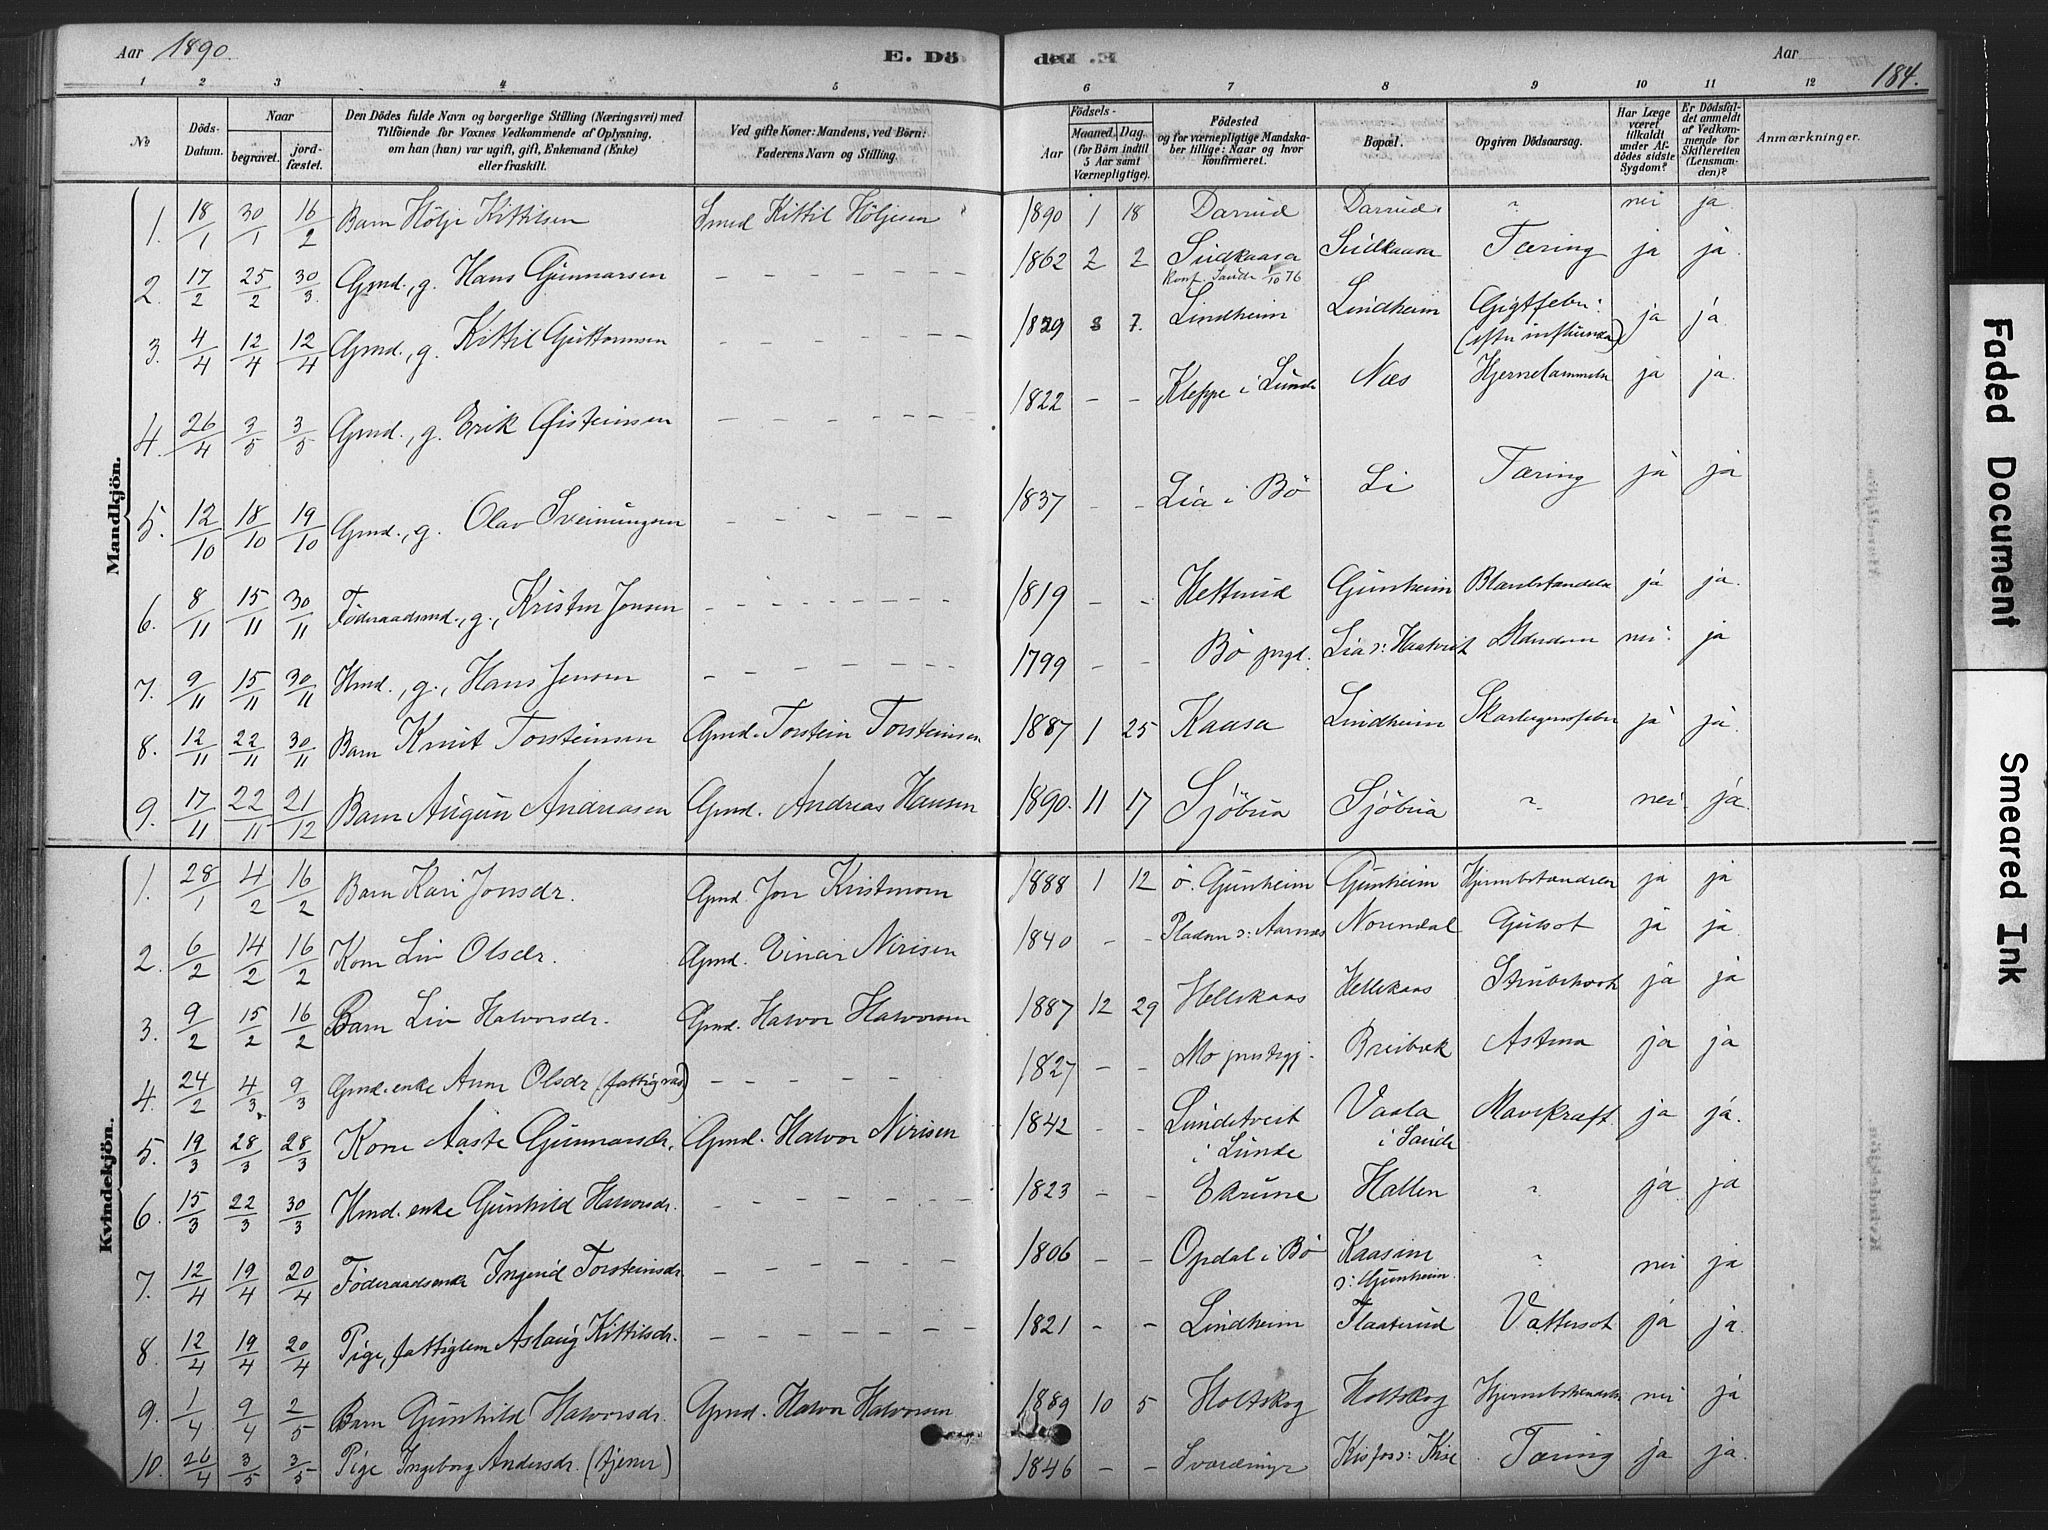 Aar 1890. E. Dö
ded E. Aar 184.
1 2 3 4 5 6 7 8 9 10 11 12
No. Döds-Datum. Naar begravet. jordfæstet. Den Dödes fulde Navn og borgerlige Stilling (Næringsvei) med Tilföiende for Voxnes Vedkommende af Oplysning, om han (hun) var ugift, gift, Enkemand (Enke) eller fraskilt. Ved gifte Koner: Mandens, ved Börn: Faderens Navn og Stilling. Födsels- Aar Maaned. Dag. (for Börn indtil 5 Aar samt Værnepligtige). Födested og for værnepligtige Mandskaber tillige: Naar og hvor konfirmeret. Bopæl. Opgiven Dödsaarsag. Har Læge været tilkaldt under Afdödes sidste Sygdom? Er Dödsfaldet anmeldt af Vedkommende for Skifteretten (Lensmanden)? Anmærkninger.
Mandkjön.
1. 18/1 30/1 16/2 Barn Hölje Kittilsen Smed Kittil Höljesen 1890 1 18 Darrud Darrud " nei ja
2. 17/2 25/2 30/3 Gmd., g. Hans Gunnarsen – – – 1862 2 2 Sudkaasa Konf. Saude 1/10 76 Sudkaasa Tæring ja ja
3. 4/4 12/4 12/4 Gmd., g. Kittil Guttormsen – – – 1829 3 7. Lindheim Lindheim Gigtfeber (efter influenza) ja ja
4. 26/4 3/5 3/5 Gmd., g. Erik Øisteinsen – – – 1822 – – Kleppe i Lunde Næs Hjernelammelse ja ja.
5. 12/10 18/10 19/10 Gmd., g. Olav Sveinungsen – – – 1837 – – Lia i Bö Li Tæring ja ja
6. 8/11 15/11 30/11 Föderaadsmd., g., Kristen Jonsen – – – 1819 – – Hettrud Gunheim ja ja.
7. 9/11 15/11 30/11 Hmd., g., Hans Jensen – – – 1799 – – Bö prgd. Lia Alderdom nei ja
8. 12/11 22/11 30/11 Barn Knut Torsteinsen Gmd. Torstein Torsteinsen 1887 1 25 Kaasa Lindheim Skarlagensfeber ja ja.
9. 17/11 22/11 21/12 Barn Augun Andreasen Gmd. Andreas Hansen 1890. 11 17 Sjöbua Sjöbua " nei ja.
Kvindekjön.
1. 28/1 4/2 16/2 Barn Kari Jonsdr. Gmd. Jon Kristensen 1888 1 12 ö. Gunheim Gunheim ja ja
2. 6/2 14/2 16/2 Kone Liv Olsdr. Gmd. Einar Nirisen 1840 – – Pladsen s: Aarnæs Norendal Gulsot ja ja.
3. 9/2 15/2 16/2 Barn Liv Halvorsdr. Gmd. Halvor Halvorsen 1887 12 29 Hellekaas Hellekaas Strubehoste ja ja
4. 24/2 4/3 9/3 Gmd. enke Anne Olsdr (fattigvæs) – – – 1827 – – Mo prestegj. Breibæk Astma ja ja
5. 19/3 28/3 28/3 Kone Aaste Gunnarsdr. Gmd. Halvor Nirisen 1842 – – Lundetveit i Lunde Vaala i Saude Mavekræft ja ja.
6. 15/3 22/3 30/3 Hmd. enke Gunhild Halvorsdr. – – – 1823 – – Ekrune Hallen " ja ja
7. 12/4 19/4 20/4 Föderaadsenke Ingerid Torsteinsdr. – – – 1806 – – Opdal i Bö Kaasine s: Gunheim. " nei ja
8. 12/4 19/4 20/4 Pige, fattiglem Aslaug Kittilsdr. – – – 1821 – – Lindheim Flaaterud Vattersot ja ja.
9. 1/4 9/4 2/5 Barn Gunhild Halvorsdr. Gmd. Halvor Halvorsen 1889 10 5 Holtskog Holtskog nei ja
10. 26/4 3/5 3/5 Pige Ingeborg Andersdr. (tjener) 1846 – – Tæring ja ja.
Faded Document
Smeared Ink